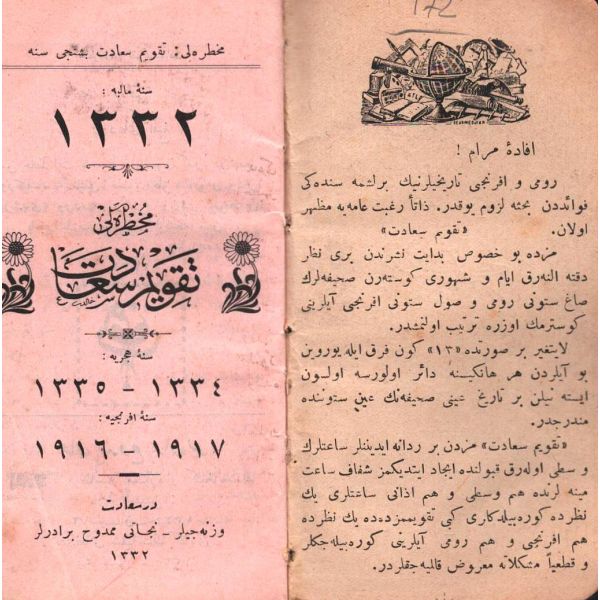 مخطره‌لی: تقویم سعادت بشنجی سنه
سنهٔ مالیه :
١٣٣٢
مخطره‌لی
تقویم سعادت
سنهٔ هجریه :
١٣٣٤ – ١٣٣٥
سنهٔ افرنجیه :
١٩١٧ – ١٩١٦
درسعادت
وزنه‌جیلر - نجاتی ممدوح برادرلر
١٣٣٢
172
افادهٔ مرام !
رومی و افرنجی تاریخلرینك برلشمه سنده‌کی
فوائددن بحثه لزوم یوقدر. ذاتاً رغبت عامه‌یه مظهر
اولان.
«تقویم سعادت»
مزده بو خصوص بدایت نشرندن بری نظر
دقته النه‌رق ایام و شهوری کوسته‌رن صحیفه‌لرك
صاغ ستونی رومی و صول ستونی افرنجی آیلرینی
کوسترمك اوزره ترتیب اولنمشدر.
لایتغیر بر صورتده «١٣» کون فرق ایله یوروین
بو آیلردن هر هانکیسنه دائر اولورسه اولسون
ایسته نیلن بر تاریخ عینی صحیفه‌نك عین ستوننده
مندرجدر.
«تقویم سعادت» مزدن بر ردانه ایدینلر ساعتلرك
وسطی اوله‌رق قبولنده ایجاد ایتدیکمز شفاف ساعت
مینه لرنده هم وسطی و هم اذانی ساعتلری یك
نظرده کوره‌بیلدکلری کبی تقویممزده‌ده یك نظرده
هم افرنجی و هم رومی آیلرینی کوره‌بیله‌جکلر
و قطعیاً مشکلاته معروض قالمیه‌جقلردر.